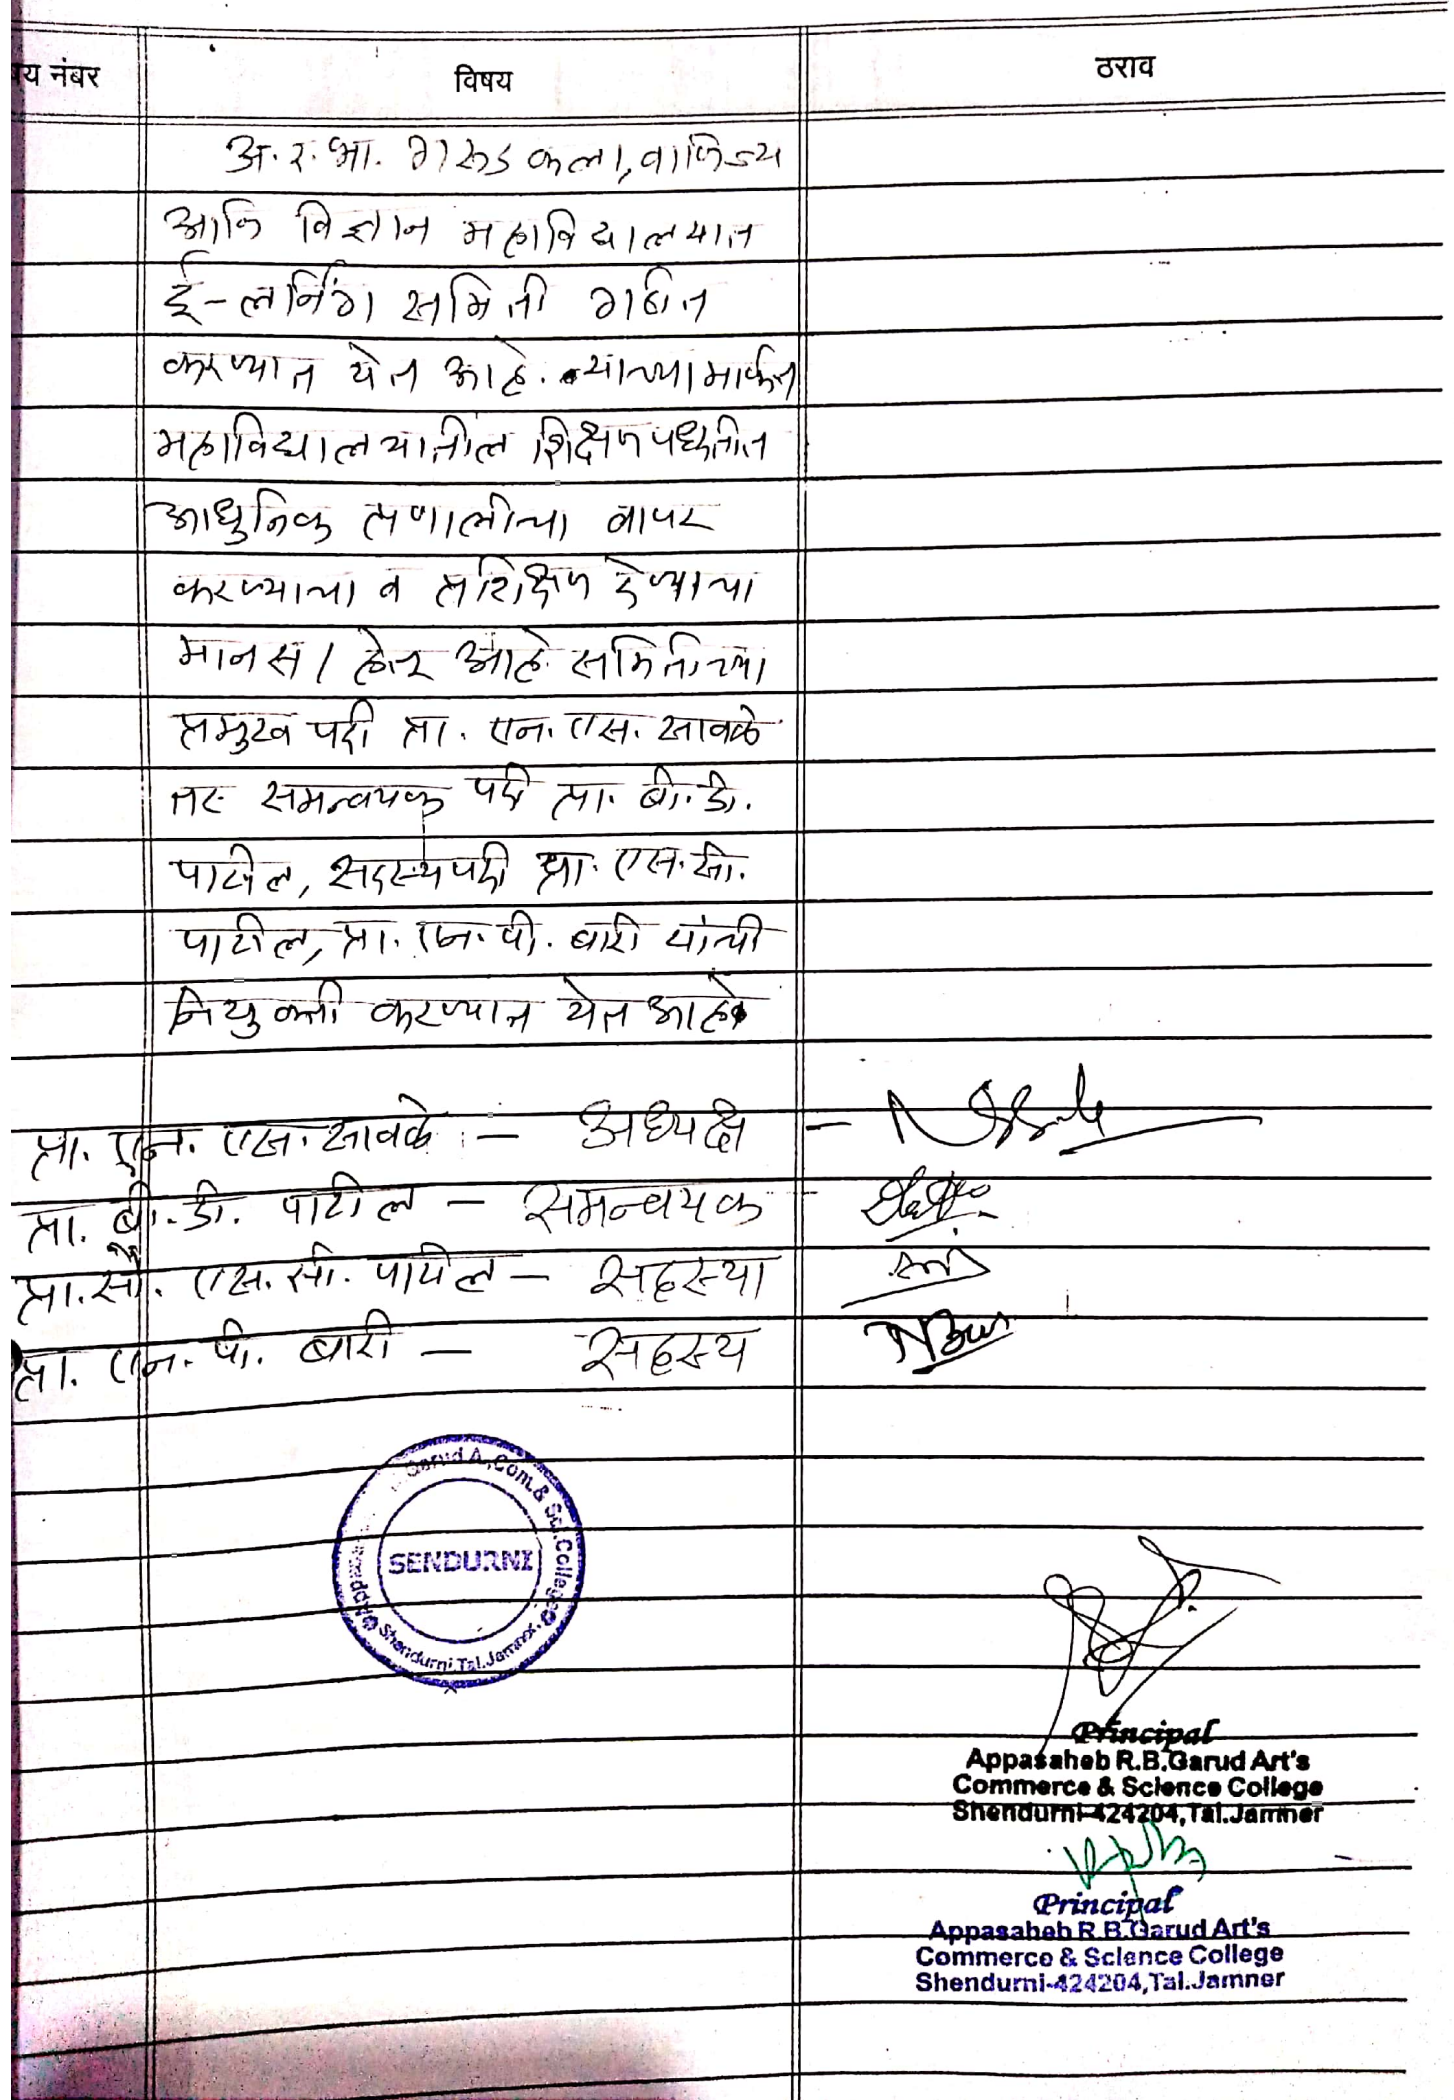 य नंबर विषय ठराव
अ. र. भा. गरुड कला, वाणिज्य
आणि विज्ञान महाविद्यालयात
ई-लर्निंग समिती गठीत
करण्यात येत आहे. याच्यामार्फत
महाविद्यालयातील शिक्षण पध्दतीत
आधुनिक प्रणालीचा वापर
करण्याचा व प्रशिक्षण देण्याचा
मानस / हेतू आहे. समितीच्या
प्रमुख पदी प्रा. एन. एस. सावळे
तर समन्वयक पदी प्रा. बी. डी.
पाटील, सदस्यपदी प्रा. एस. सी.
पाटील, प्रा. एन. पी. बारी यांची
नियुक्ती करण्यात येत आहे
प्रा. एन. एस. सावळे - अध्यक्ष -
प्रा. बी. डी. पाटील - समन्वयक -
प्रा. सौ. एस. सी. पाटील - सदस्या
प्रा. एन. पी. बारी - सदस्य
Garud A., Com. & Sci. College
SENDURNI
Shendurni Tal. Jamner.
Principal
Appasaheb R.B.Garud Art's
Commerce & Science College
Shendurni-424204,Tal.Jamner
Principal
Appasaheb R.B.Garud Art's
Commerce & Science College
Shendurni-424204,Tal.Jamner